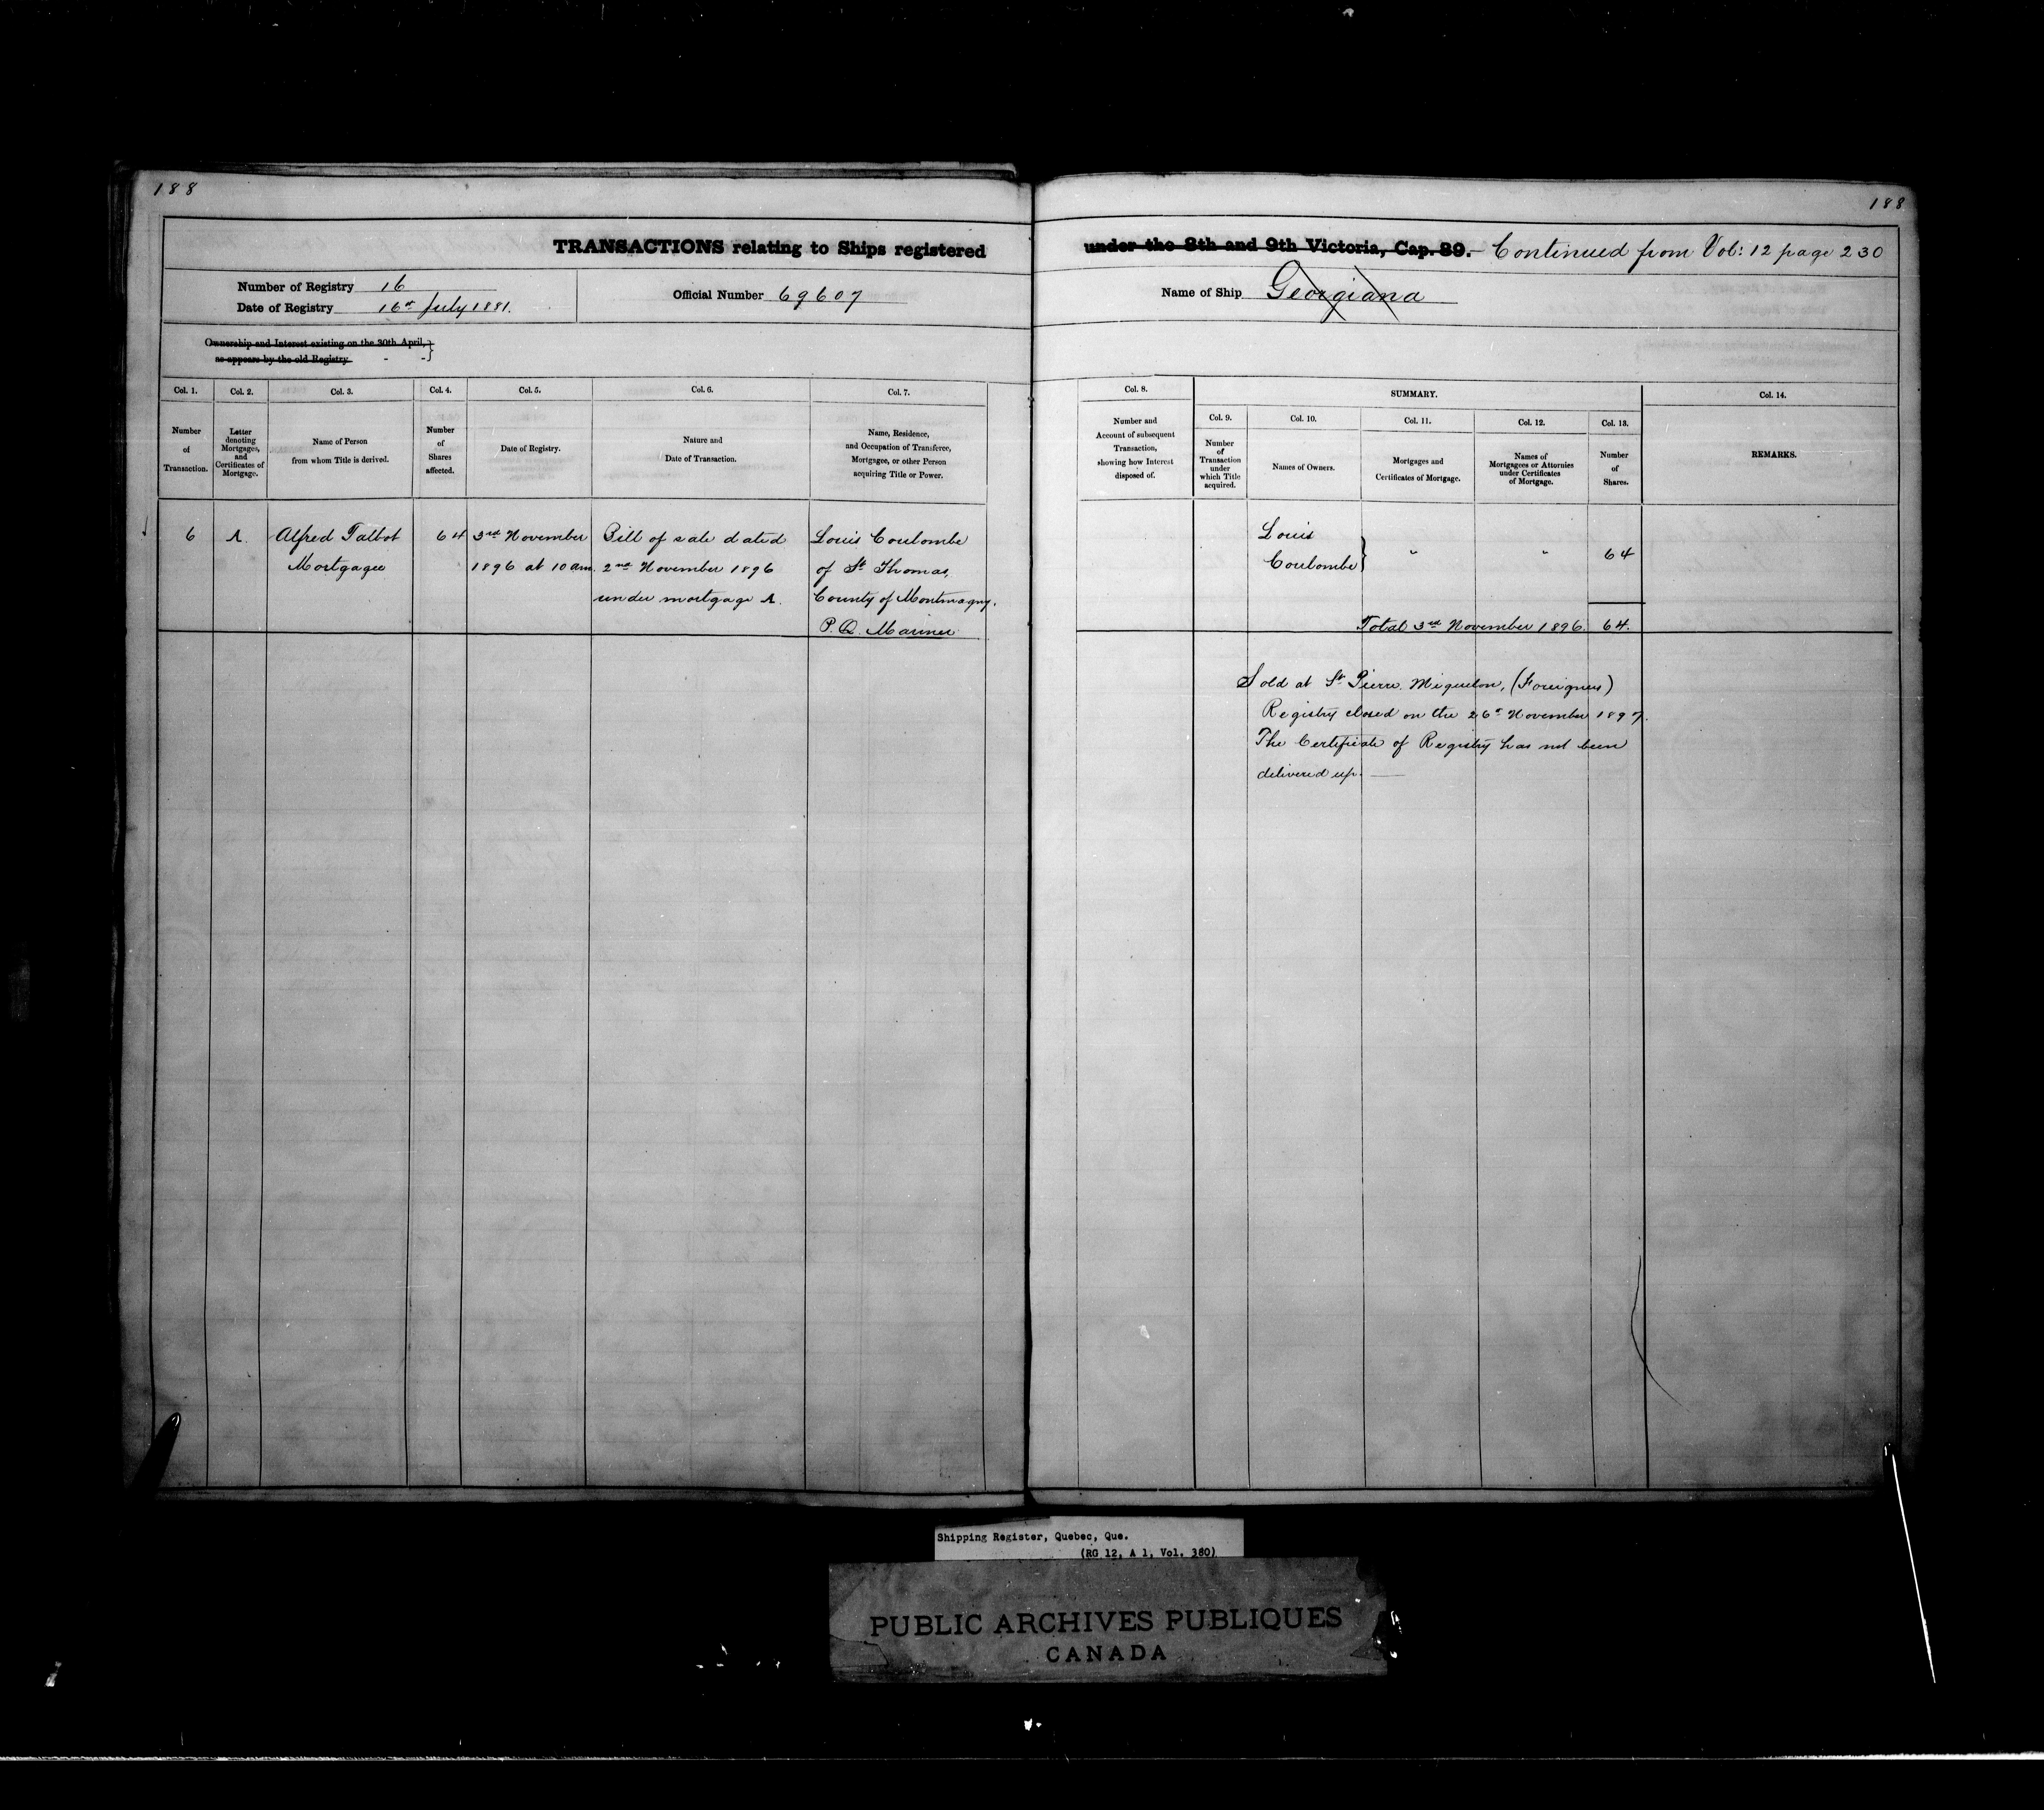 188
188
TRANSACTIONS relating to Ships registered under the 8th and 9th Victoria, Cap. 89. - Continued from Vol: 12 page 230
Number of Registry 16
Date of Registry 16th July 1881.
Official Number 69607
Name of Ship Georgiana
Ownership and Interest existing on the 30th April,
as appears by the old Registry - -
Col. 1.
Number
of
Transaction.
Col. 2.
Letter
denoting
Mortgages,
and
Certificates of
Mortgage.
Col. 3.
Name of Person
from whom Title is derived.
Col. 4.
Number
of
Shares
affected.
Col. 5.
Date of Registry.
Col. 6.
Nature and
Date of Transaction.
Col. 7.
Name, Residence,
and Occupation of Transferee,
Mortgagee, or other Person
acquiring Title or Power.
Col. 8.
Number and
Account of subsequent
Transaction,
showing how Interest
disposed of.
SUMMARY.
Col. 9.
Number
of
Transaction
under
which Title
acquired.
Col. 10.
Names of Owners.
Col. 11.
Mortgages and
Certificates of Mortgage.
Col. 12.
Names of
Mortgagees or Attornies
under Certificates
of Mortgage.
Col. 13.
Number
of
Shares.
Col. 14.
REMARKS.
6
A.
Alfred Talbot
Mortgagee
64
3rd November
1896 at 10 am.
Bill of sale dated
2nd November 1896
under mortgage A.
Louis Coulombe
of St Thomas,
County of Montmagny.
P.Q. Mariner
Louis
Coulombe
"
"
64
Total 3rd November 1896. 64.
Sold at St Pierre Miquelon, (Foreigners)
Registry closed on the 26th November 1897.
The Certificate of Registry has not been
delivered up.
Shipping Register, Quebec, Que.
(RG 12, A 1, Vol. 380)
PUBLIC ARCHIVES PUBLIQUES
CANADA